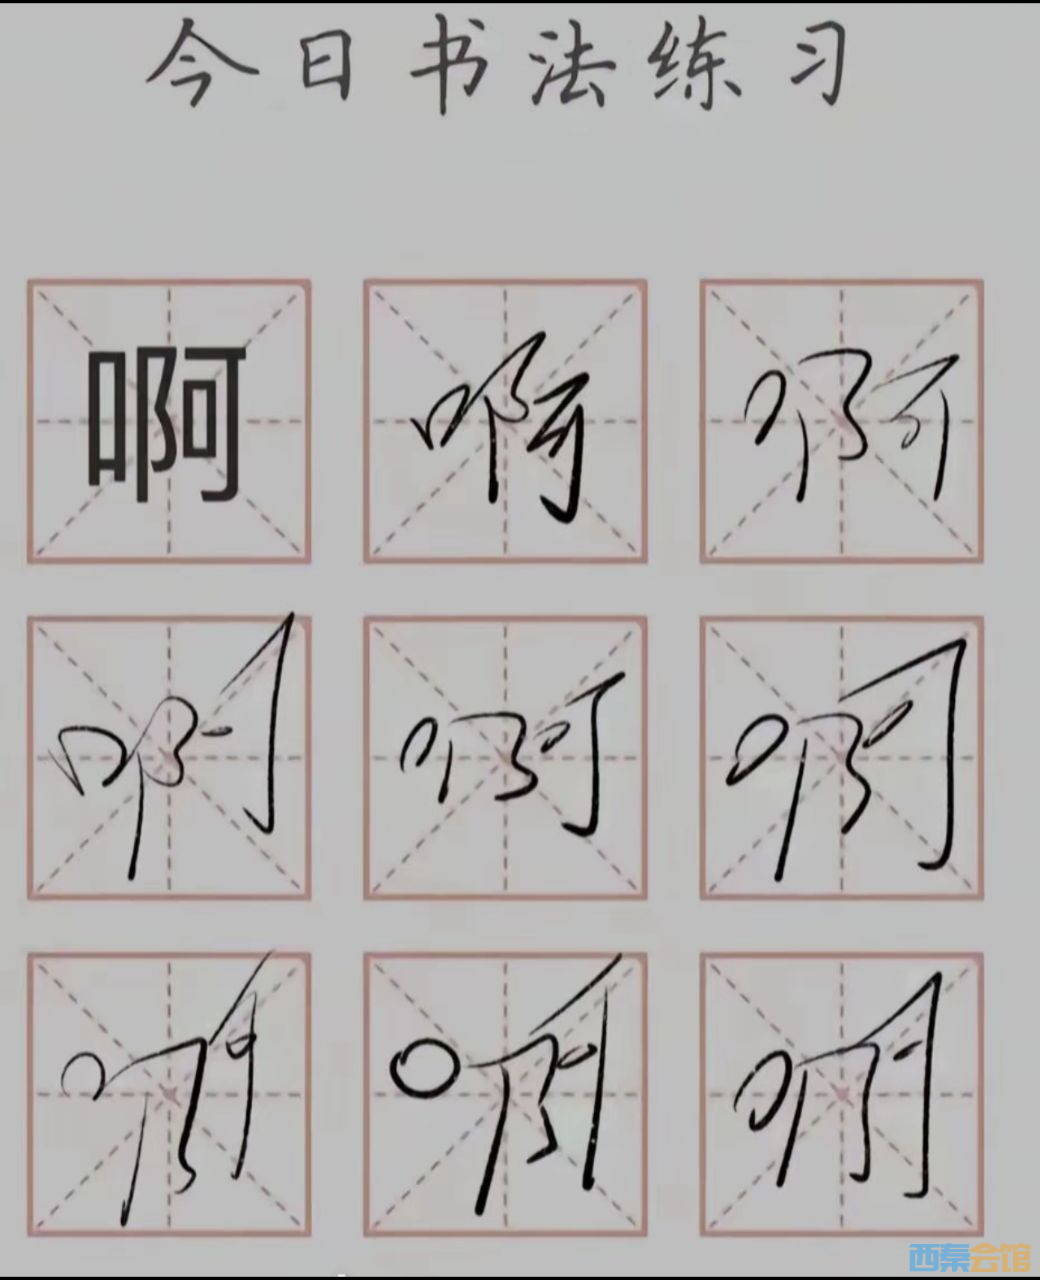 今日书法练习
啊 啊 啊
啊 啊 啊
啊 啊 啊
西秦会馆